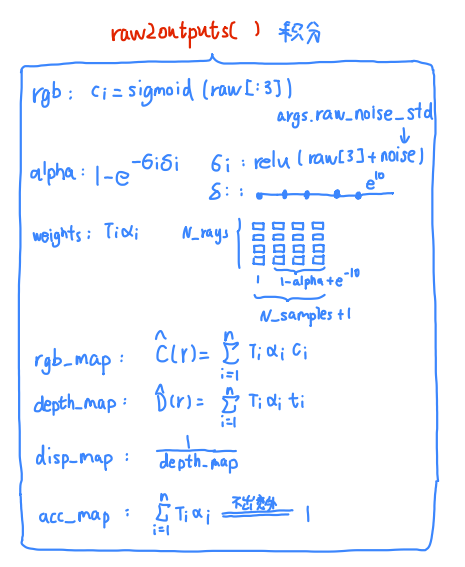 raw2outputs( ) 积分
rgb: ci = sigmoid (raw[:3])
args.raw_noise_std
alpha: 1-e^-σiδi σi: relu (raw[3]+noise)
δ:: e^10
weights: Tiαi N_rays
1 1-alpha+e^-10
N_samples+1
rgb_map: Ĉ(r)= Σ^n_i=1 Ti αi ci
depth_map: D̂(r)= Σ^n_i=1 Ti αi ti
disp_map: 1/depth_map
acc_map: Σ^n_i=1 Ti αi 不出意外 1